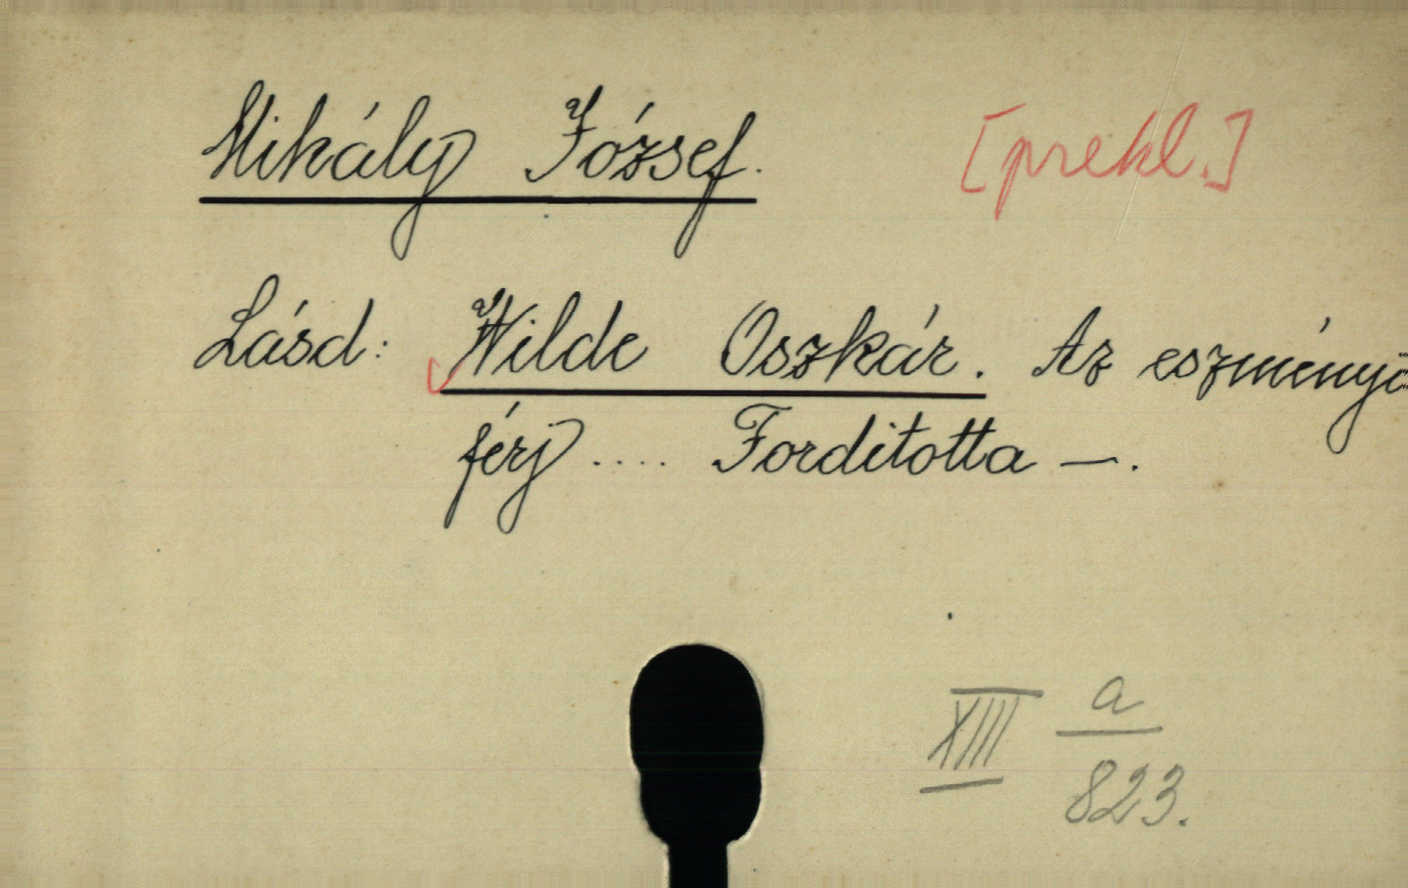 Mihály József. [prekl.]
Lásd: Wilde Oszkár. Az eszményő
férj .... Forditotta —.
XIII a
823.